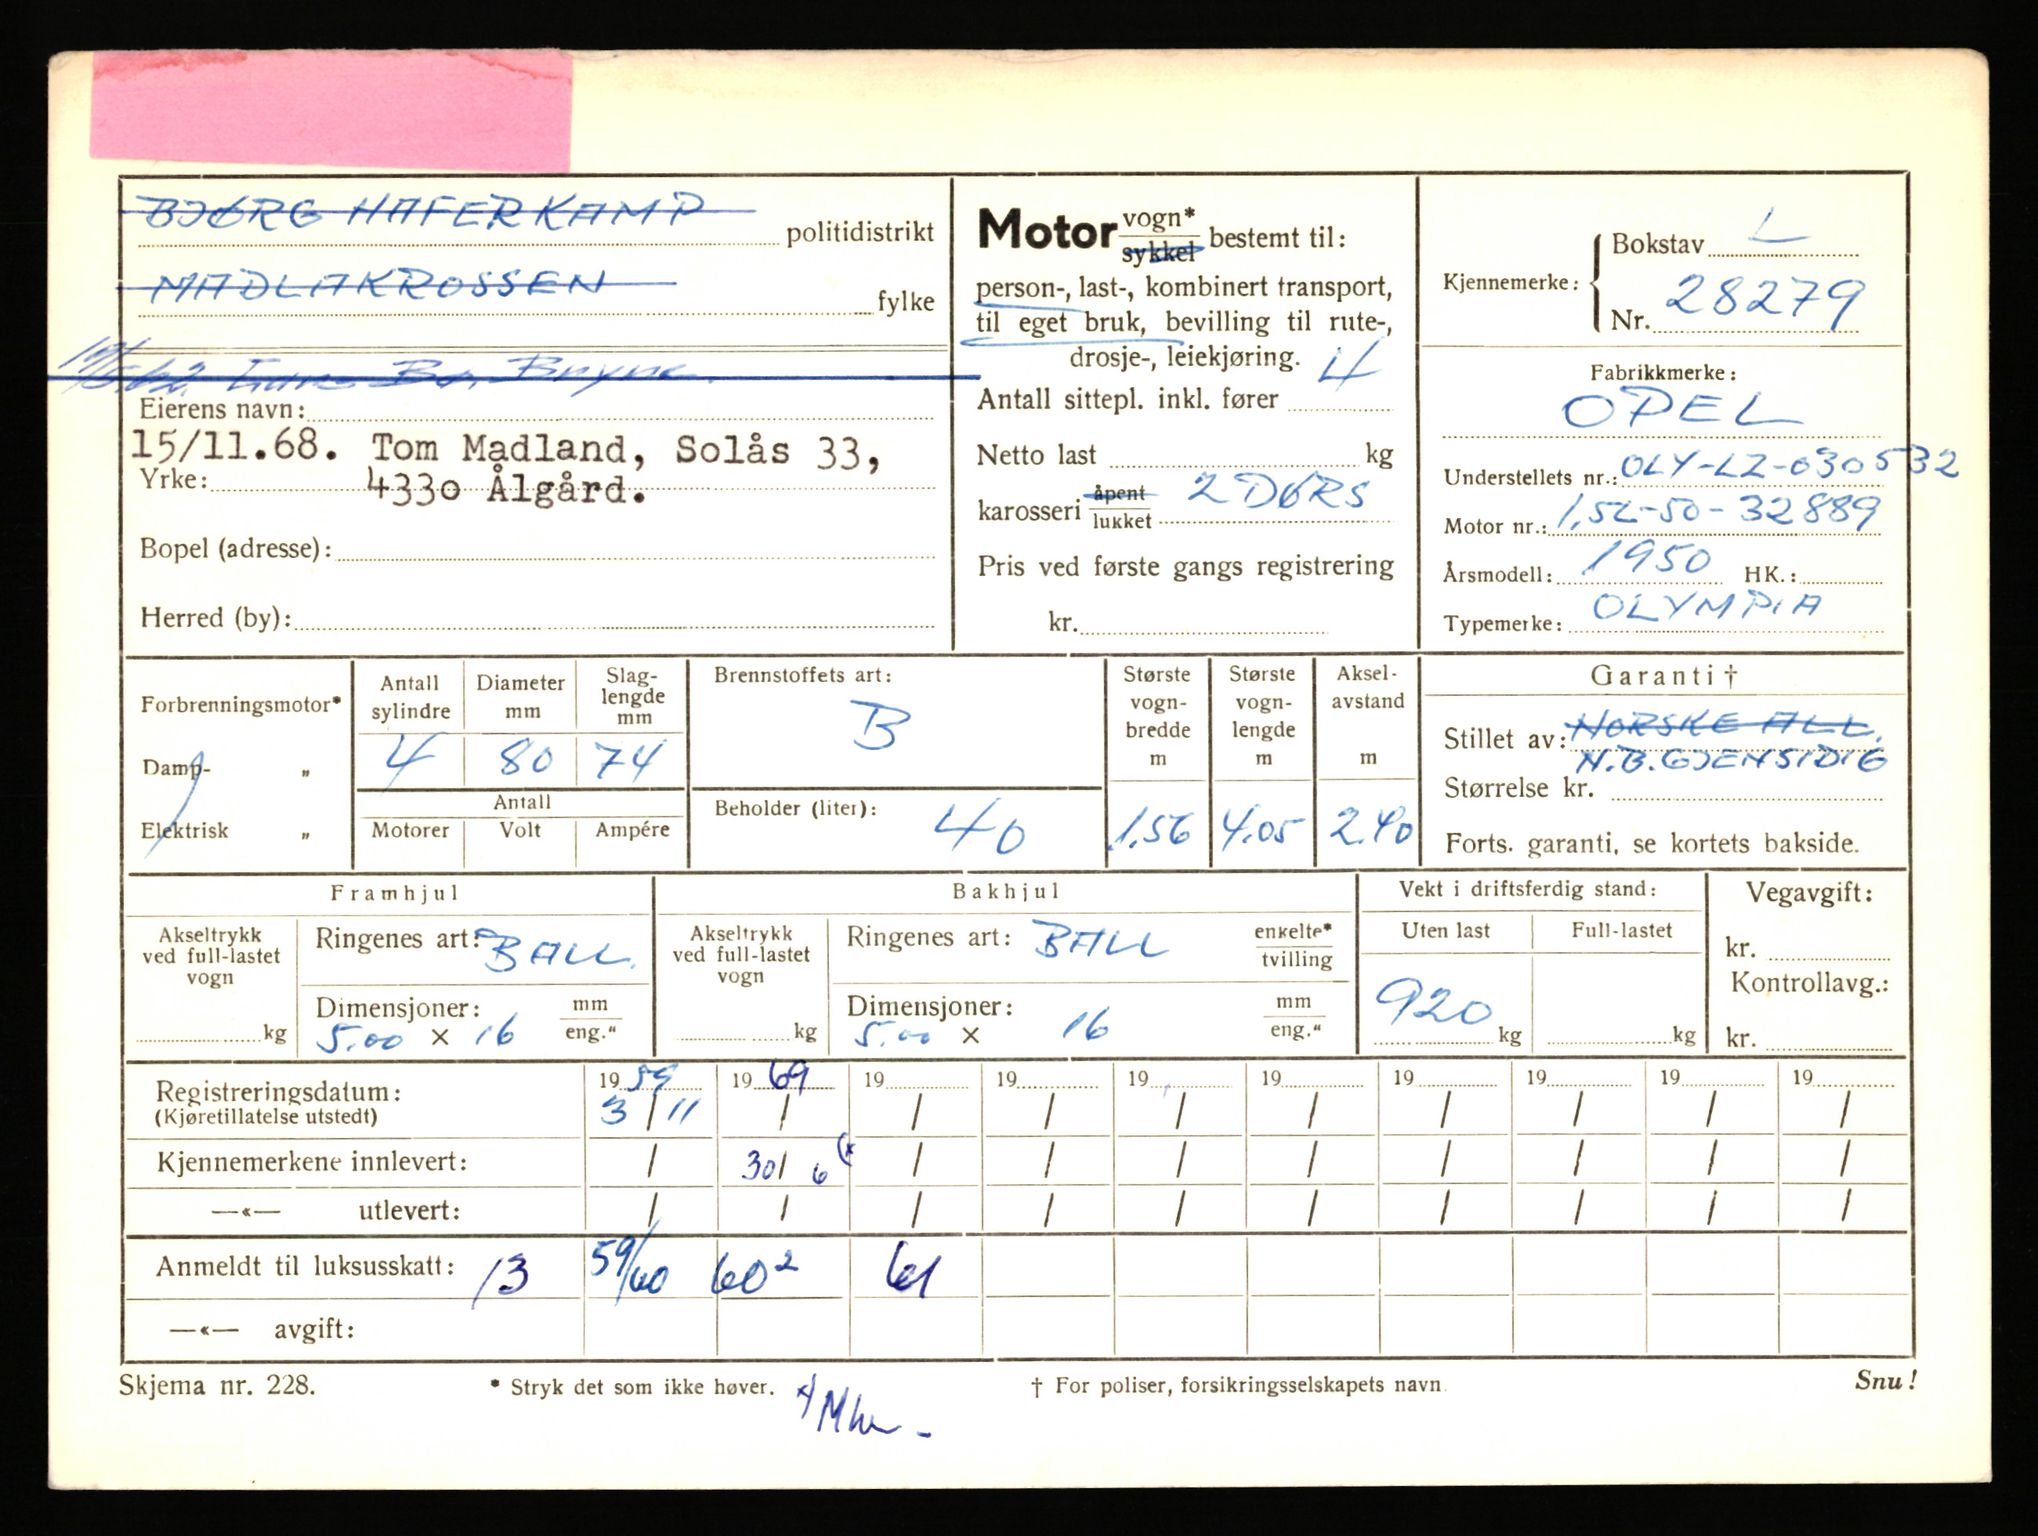 BJØRG HAFERKAMP politidistrikt
MADLAKROSSEN fylke
Bryne
Eierens navn:
15/11.68. Tom Madland, Solås 33,
Yrke: 4330 Ålgård.
Bopel (adresse):
Herred (by):
Motor vogn* sykkel bestemt til:
person-, last-, kombinert transport,
til eget bruk, bevilling til rute-,
drosje-, leiekjøring.
Antall sittepl. inkl. fører 4
Netto last kg
karosseri åpent lukket 2 DØRS
Pris ved første gangs registrering
kr.
Kjennemerke: Bokstav L
Nr. 28279
Fabrikkmerke:
OPEL
Understellets nr.: OLY-LZ-030532
Motor nr.: 1,5L-50-32889
Årsmodell: 1950 HK.:
Typemerke: OLYMPIA
Forbrenningsmotor*
Damp- "
Elektrisk "
Antall sylindre Diameter mm Slag-lengde mm
4 80 74
Antall
Motorer Volt Ampére
Brennstoffets art:
B
Beholder (liter):
40
Største vogn-bredde m Største vogn-lengde m Aksel-avstand m
1.56 4.05 2.40
Garanti †
Stillet av: NORSKE ALL.
N.B. GJENSIDIG
Størrelse kr.
Forts. garanti, se kortets bakside.
Framhjul
Akseltrykk
ved full-lastet
vogn
kg
Ringenes art: BALL.
Dimensjoner: mm
5.00 × 16 eng."
Bakhjul
Akseltrykk
ved full-lastet
vogn
kg
Ringenes art: BALL enkelte*
tvilling
Dimensjoner: mm
5.00 × 16 eng."
Vekt i driftsferdig stand:
Uten last Full-lastet
920 kg kg
Vegavgift:
kr.
Kontrollavg.:
kr.
Registreringsdatum: 19 59 19 69 19 19 19 19 19 19 19 19
(Kjøretillatelse utstedt) 3/11 / / / / / / / / /
Kjennemerkene innlevert: / 30/6 (* / / / / / / / /
—«— utlevert: / / / / / / / / / /
Anmeldt til luksusskatt: 13 59/60 60² 61
—«— avgift:
Skjema nr. 228. * Stryk det som ikke høver. † For poliser, forsikringsselskapets navn Snu!